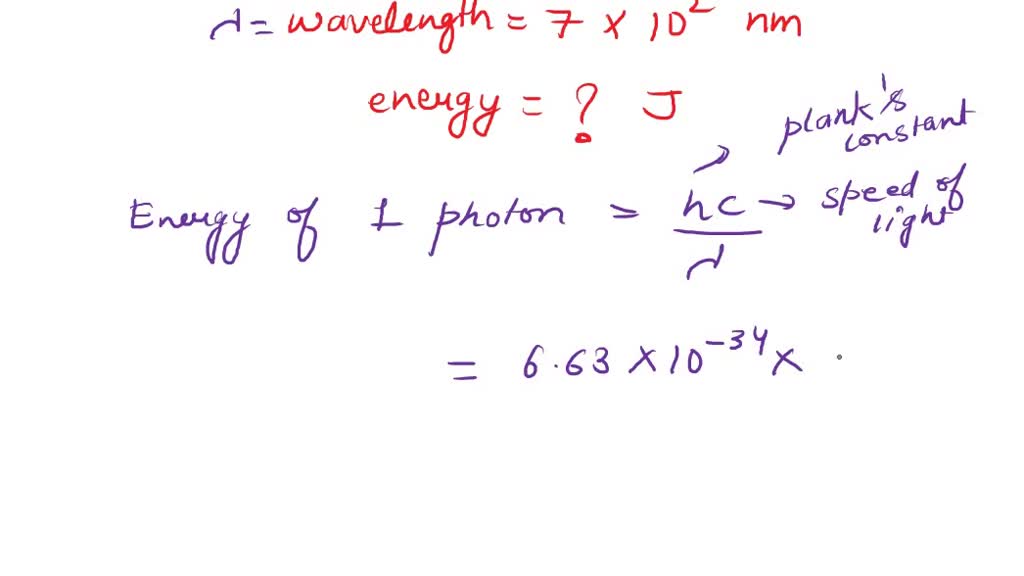 λ = wavelength = 7 × 10² nm
energy = ? J
plank's constant
Energy of 1 photon = hc/λ → speed of light
= 6.63 × 10⁻³⁴ ×